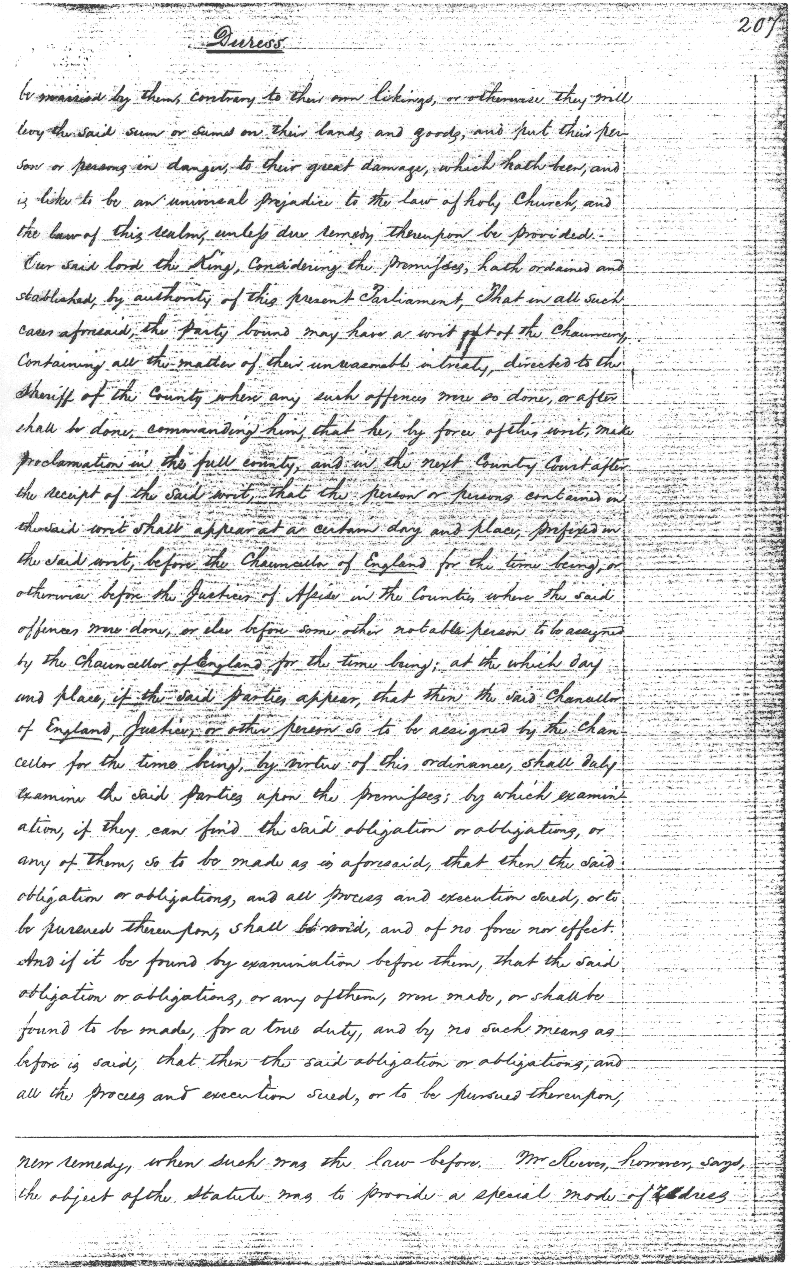 207
Duress
be married by them, contrary to their own likings, or otherwise they will
levy the said sum or sums on their lands and goods, and put their per-
son or persons in danger, to their great damage, which hath been, and
is like to be an universal prejudice to the law of holy Church, and
the law of this realm, unless due remedy thereupon be provided.-
Our said lord the King, Considering the premisses, hath ordained and
stablished, by authority of this present Parliament, That in all such
cases aforesaid, the party bound may have a writ out of the Chauncery,
Containing all the matter of their unreasonable intreaty, directed to the
Sheriff of the County where any such offences were so done, or after
shall be done, commanding him, that he, by force of this writ, make
proclamation in the full county, and in the next County Court after
the receipt of the said writ, that the person or persons contained in
the said writ shall appear at a certain day and place, prefixed in
the said writ, before the Chauncellor of England for the time being, or
otherwise before the Justices of Assise in the Counties where the said
offences were done, or else before some other notable person to be assigned
by the Chauncellor of England for the time being; at the which day
and place, if the said parties appear, that then the said Chancellor
of England, Justice, or other person so to be assigned by the Chan-
cellor for the time being, by virtue of this ordinance, shall duly
examine the said parties upon the premisses; by which examin-
ation, if they can find the said obligation or obligations, or
any of them, so to be made as is aforesaid, that then the said
obligation or obligations, and all process and execution sued, or to
be pursued thereupon, shall be void, and of no force nor effect.
And if it be found by examination before them, that the said
obligation or obligations, or any of them, were made, or shall be
found to be made, for a true duty, and by no such means as
before is said, that then the said obligation or obligations, and
all the process and execution sued, or to be pursued thereupon,
new remedy, when such was the law before. Mr Reeves, however, says,
the object of the statute was to provide a special mode of redress